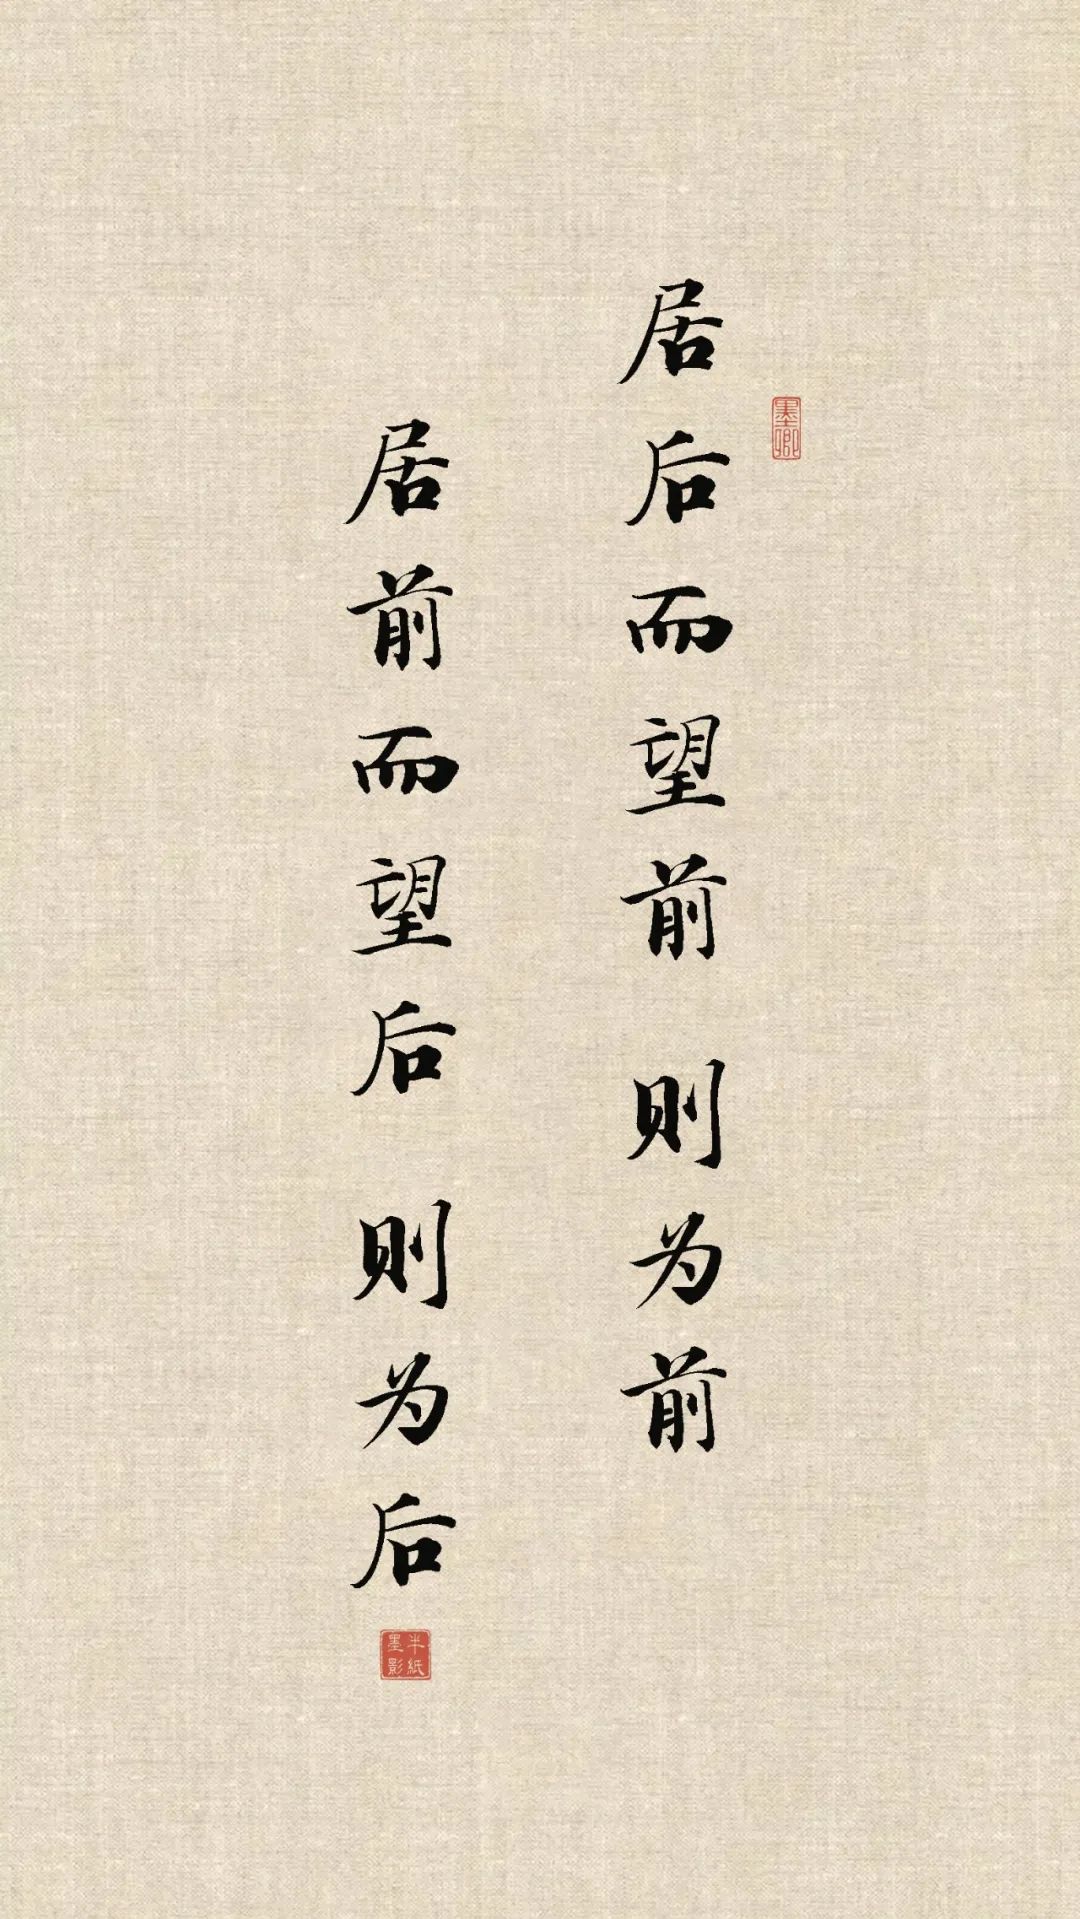 居后而望前 则为前
居前而望后 则为后
墨卿
半纸
墨影